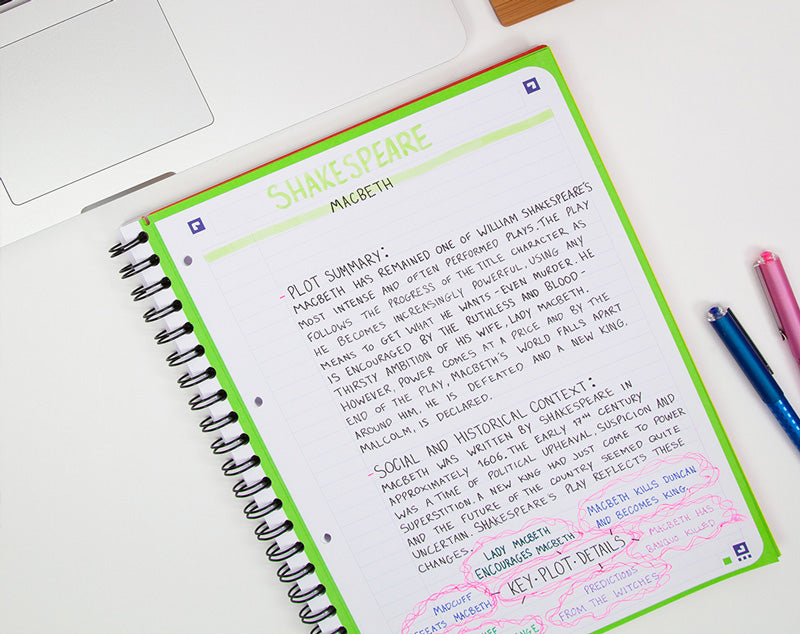 SHAKESPEARE
MACBETH
- PLOT SUMMARY:
MACBETH HAS REMAINED ONE OF WILLIAM SHAKESPEARE'S
MOST INTENSE AND OFTEN PERFORMED PLAYS. THE PLAY
FOLLOWS THE PROGRESS OF THE TITLE CHARACTER AS
HE BECOMES INCREASINGLY POWERFUL, USING ANY
MEANS TO GET WHAT HE WANTS - EVEN MURDER. HE
IS ENCOURAGED BY THE RUTHLESS AND BLOOD-
THIRSTY AMBITION OF HIS WIFE, LADY MACBETH.
HOWEVER, POWER COMES AT A PRICE AND BY THE
END OF THE PLAY, MACBETH'S WORLD FALLS APART
AROUND HIM. HE IS DEFEATED AND A NEW KING,
MALCOLM, IS DECLARED.
- SOCIAL AND HISTORICAL CONTEXT:
MACBETH WAS WRITTEN BY SHAKESPEARE IN
APPROXIMATELY 1606. THE EARLY 17TH CENTURY
WAS A TIME OF POLITICAL UPHEAVAL, SUSPICION AND
SUPERSTITION. A NEW KING HAD JUST COME TO POWER
AND THE FUTURE OF THE COUNTRY SEEMED QUITE
UNCERTAIN. SHAKESPEARE'S PLAY REFLECTS THESE
CHANGES.
LADY MACBETH
ENCOURAGES MACBETH
MACBETH KILLS DUNCAN
AND BECOMES KING.
- KEY · PLOT · DETAILS
MACBETH HAS
BANQUO KILLED
MADCUFF
MACBETH
PREDICTIONS
FROM THE WITCHES